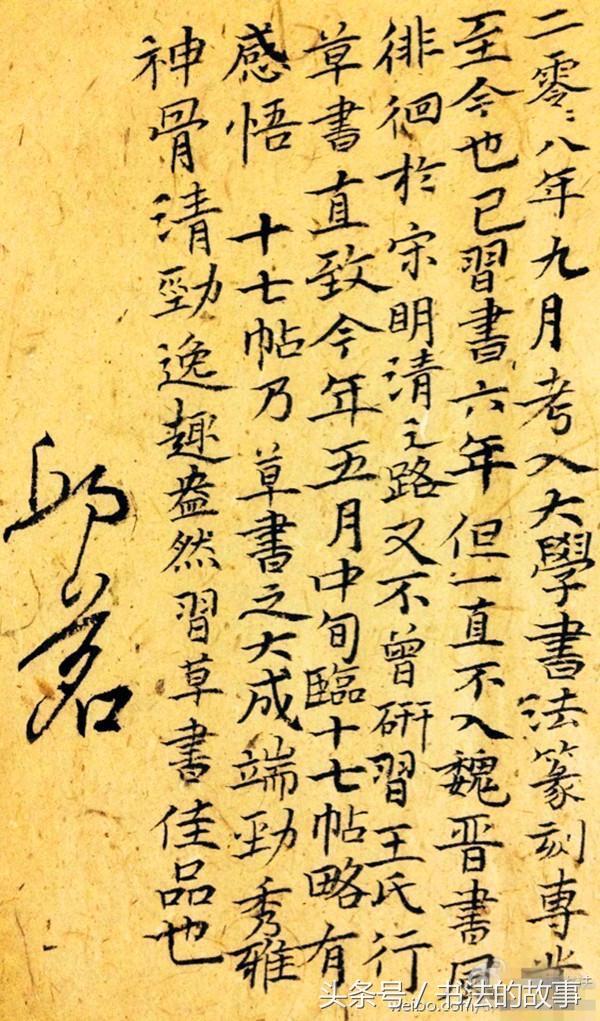 二零零八年九月考入大學書法篆刻專业
至今也已習書六年但一直不入魏晋書風
徘徊於宋明清之路又不曾研習王氏行
草書直致今年五月中旬臨十七帖略有
感悟 十七帖乃草書之大成端勁秀雅
神骨清勁逸趣盎然習草書佳品也
邱茗
头条号/书法的故事
weibo.com/